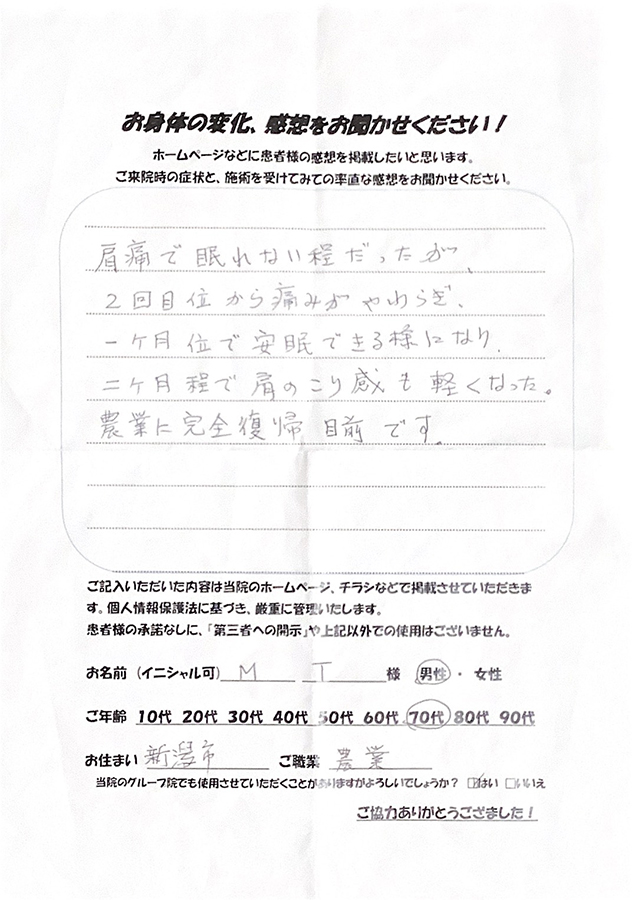 お身体の変化、感想をお聞かせください！
ホームページなどに患者様の感想を掲載したいと思います。
ご来院時の症状と、施術を受けてみての率直な感想をお聞かせください。
肩痛で眠れない程だったが、
2回目位から痛みがやわらぎ、
一ケ月位で安眠できる様になり、
二ケ月程で肩のこり感も軽くなった。
農業に完全復帰目前です。
ご記入いただいた内容は当院のホームページ、チラシなどで掲載させていただきま
す。個人情報保護法に基づき、厳重に管理いたします。
患者様の承諾なしに、「第三者への開示」や上記以外での使用はございません。
お名前（イニシャル可） M T 様 男性・女性
ご年齢 10代 20代 30代 40代 50代 60代 70代 80代 90代
お住まい 新潟市 ご職業 農業
当院のグループ院でも使用させていただくことがありますがよろしいでしょうか？ ☑はい □いいえ
ご協力ありがとうございました！